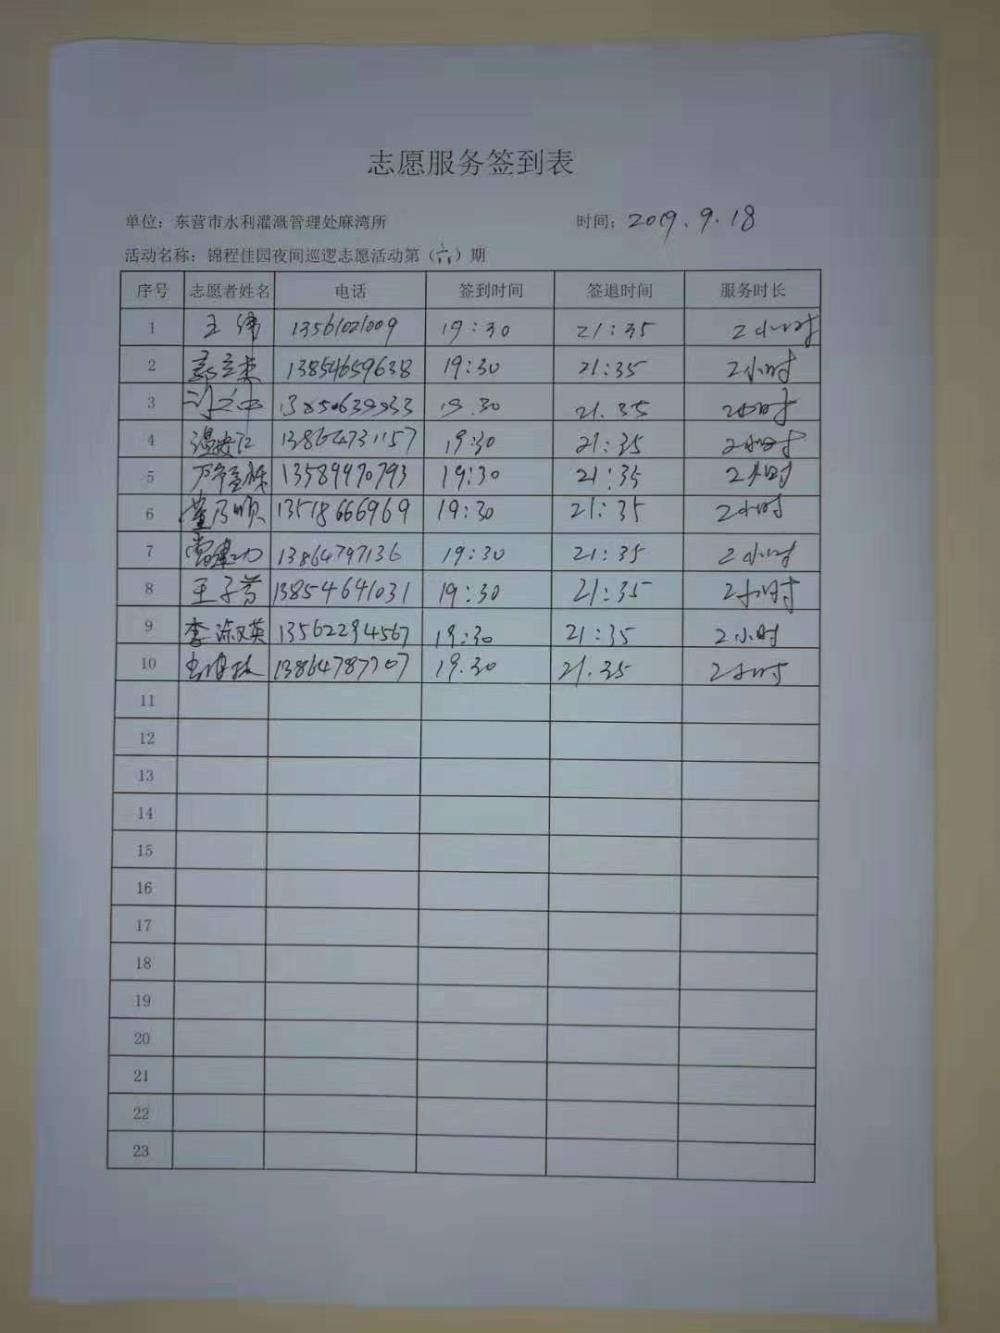 志愿服务签到表
单位：东营市水利灌溉管理处麻湾所 时间：2019.9.18
活动名称：锦程佳园夜间巡逻志愿活动第（六）期
序号 志愿者姓名 电话 签到时间 签退时间 服务时长
1 王伟 13561021009 19:30 21:35 2小时
2 13854659638 19:30 21:35 2小时
3 19.30 21.35 2小时
4 温安江 13864731157 19:30 21:35 2小时
5 13589970793 19:30 21:35 2小时
6 董乃顺 13518666969 19:30 21:35 2小时
7 常建功 13864797136 19:30 21:35 2小时
8 王子芳 13854641031 19:30 21:35 2小时
9 李淑英 13562294567 19:30 21:35 2小时
10 13864787707 19.30 21.35 2小时
11
12
13
14
15
16
17
18
19
20
21
22
23